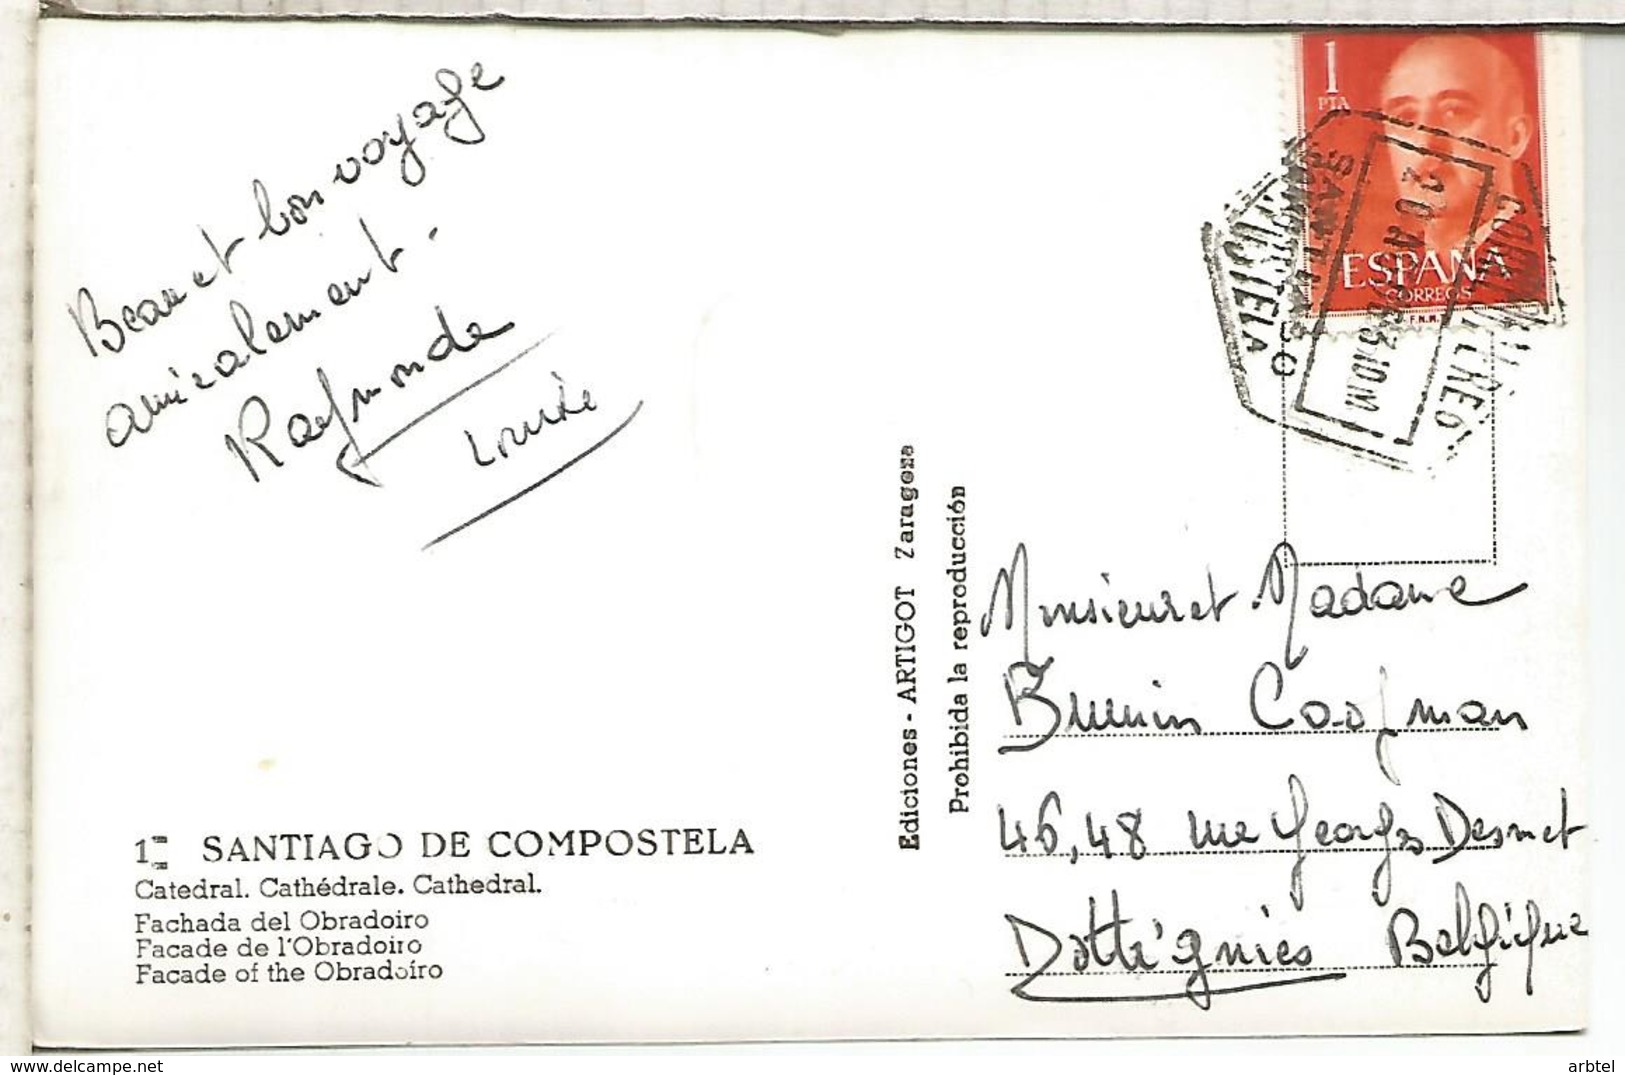 Beau et bon voyage
amicalement.
Raymonde
Louise
1 SANTIAGO DE COMPOSTELA
Catedral. Cathédrale. Cathedral.
Fachada del Obradoiro
Facade de l'Obradoiro
Facade of the Obradoiro
Ediciones - ARTIGOT Zaragoza
Prohibida la reproducción
1
PTA
ESPAÑA
CORREOS
F.N.M.
SANTIAGO
COMPOSTELA
20 AGO 63.10M
Monsieur et Madame
Coofman
46,48 rue Georges Desmet
Dottignies Belgique
arbtel